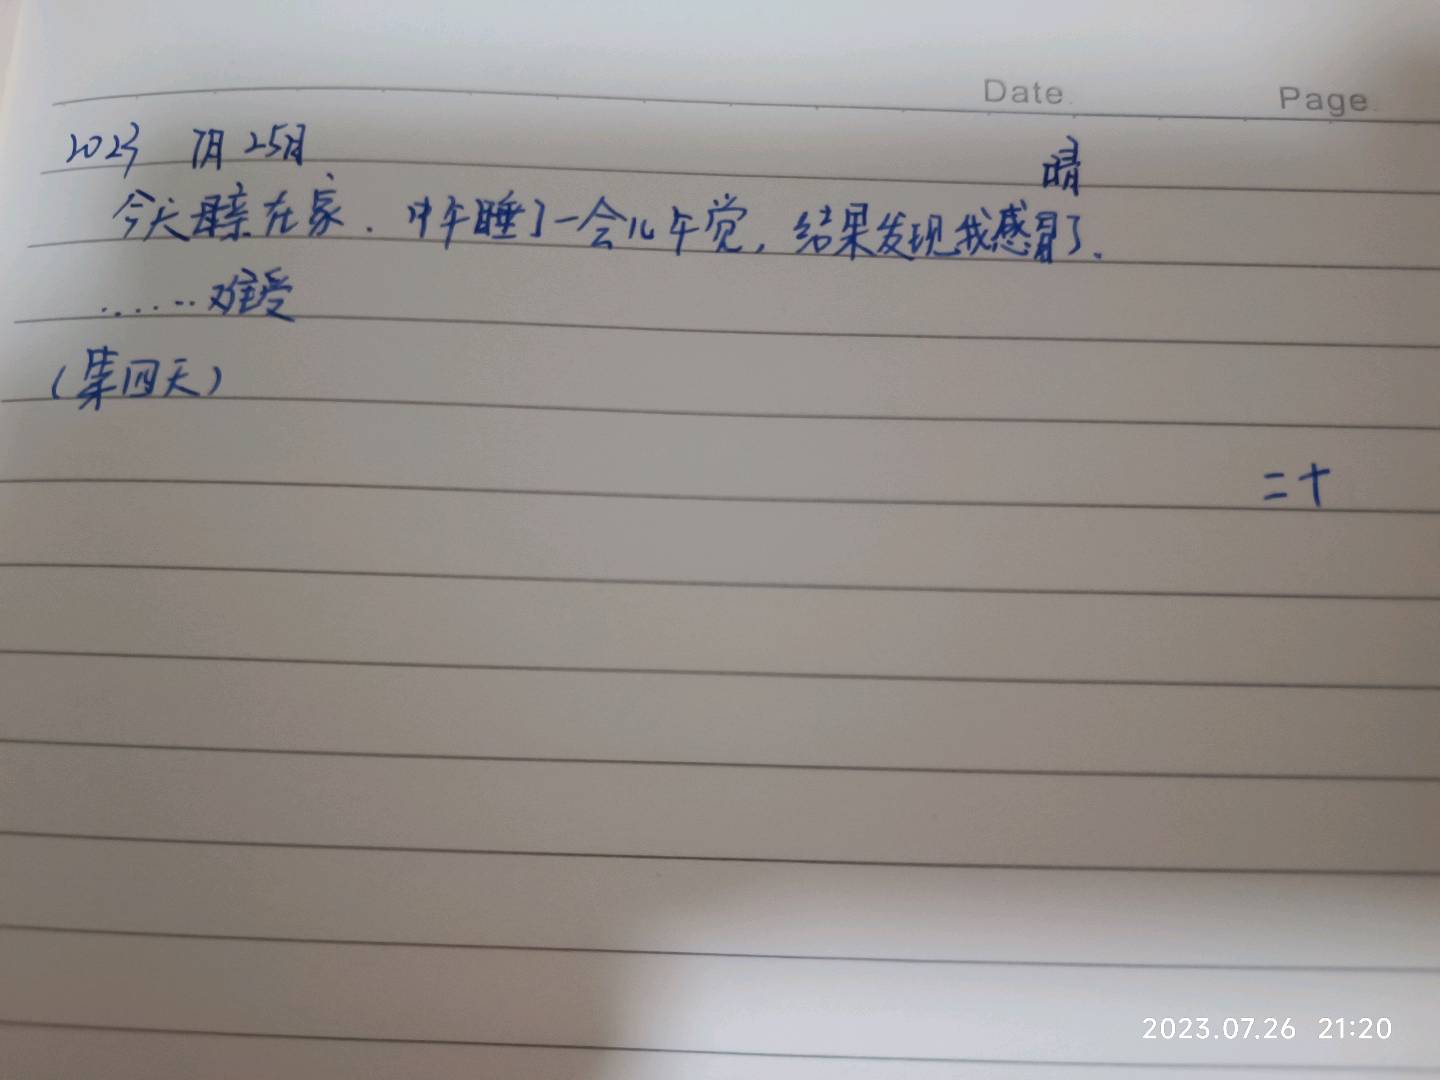 Date. Page.
2023 7月25日 晴
今天母亲在家.中午睡了一会儿午觉,结果发现我感冒了.
......难受
(第四天)
二十
2023.07.26 21:20